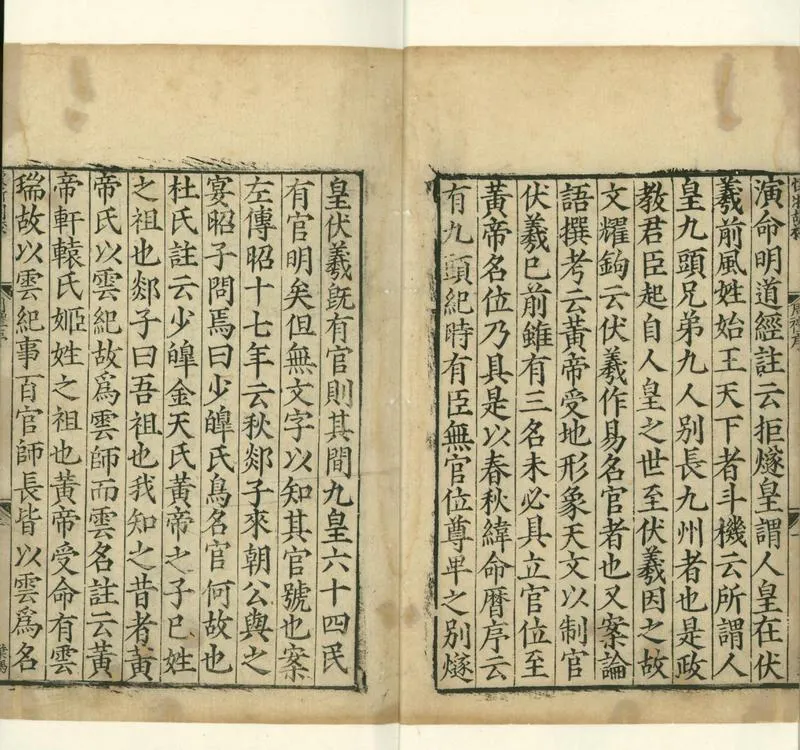 演命明道經註云拒燧皇謂人皇在伏
羲前風姓始王天下者斗機云所謂人
皇九頭兄弟九人別長九州者也是政
教君臣起自人皇之世至伏羲因之故
文耀鉤云伏羲作易名官者也又案論
語撰考云黃帝受地形象天文以制官
伏羲已前雖有三名未必具立官位至
黃帝名位乃具是以春秋緯命曆序云
有九頭紀時有臣無官位尊卑之別燧
皇伏羲旣有官則其間九皇六十四民
有官明矣但無文字以知其官號也案
左傳昭十七年云秋郯子來朝公與之
宴昭子問焉曰少皥氏鳥名官何故也
杜氏註云少皥金天氏黃帝之子巳姓
之祖也郯子曰吾祖也我知之昔者黃
帝氏以雲紀故爲雲師而雲名註云黃
帝軒轅氏姬姓之祖也黃帝受命有雲
瑞故以雲紀事百官師長皆以雲爲名